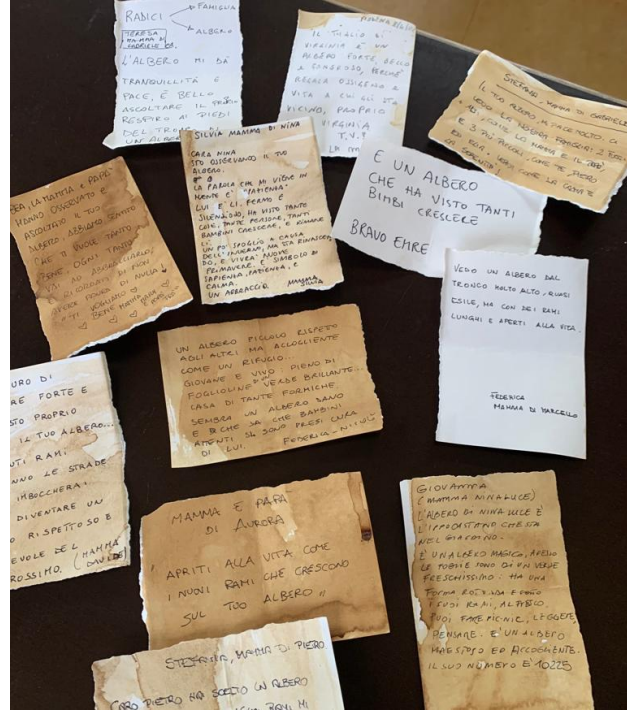 RADICI
FAMIGLIA
ALBERO
TERESA
MAMMA DI
GABRIELE
L'ALBERO MI DÀ
TRANQUILLITÀ E
PACE, È BELLO
ASCOLTARE IL
RESPIRO AI PIEDI
DEL
UN
IL TIGLIO DI
VIRGINIA È UN
ALBERO FORTE, BELLO
E GENEROSO, PERCHÉ
REGALA OSSIGENO E
VITA A CHI GLI STA
VICINO, PROPRIO
VIRGINIA
T.V.T
LA
STEFANIA, MAMMA DI GABRIELE
IL TUO ALBERO, MI FA
VEDO LA NOSTRA FAMIGLIA: 2 FUSTI
ALTI, COME LA MAMMA E IL PAPÀ,
E 3 PIÙ PICCOLI, COME TE, PIETRO
ED
SILVIA MAMMA DI NINA
CARA NINA
STO OSSERVANDO IL TUO
ALBERO.
LA PAROLA CHE MI VIENE IN
MENTE È "PAZIENZA"
LUI È LÌ, FERMO E
SILENZIOSO, HA VISTO TANTE
COSE, TANTE PERSONE, TANTI
BAMBINI CRESCERE, E RIMANE
LÌ.
UN PO' SPOGLIO A CAUSA
DELL'INVERNO, MA STA RINASCEN
DO, E VIVRÀ NUOVE
PRIMAVERE. È SIMBOLO DI
SAPIENZA, PAZIENZA, E
CALMA.
UN ABBRACCIO. MAMMA
SILVIA
È UN ALBERO
CHE HA VISTO TANTI
BIMBI CRESCERE
BRAVO EMRE
LA MAMMA E PAPÀ
HANNO OSSERVATO E
ASCOLTATO IL TUO
ALBERO. ABBIAMO SENTITO
CHE TI VUOLE TANTO
BENE. OGNI TANTO
VAI AD ABBRACCIARLO,
RICORDATI DI FOGLI
AVERE PAURA DI NULLA
VEDO UN ALBERO DAL
TRONCO MOLTO ALTO, QUASI
ESILE, MA CON DEI RAMI
LUNGHI E APERTI ALLA VITA.
FEDERICA
MAMMA DI MARCELLO
UN ALBERO PICCOLO RISPETTO
AGLI ALTRI MA ACCOGLIENTE
COME UN RIFUGIO...
GIOVANE E VIVO. PIENO DI
FOGLIOLINE DI UN VERDE BRILLANTE...
CASA DI TANTE FORMICHE.
SEMBRA UN ALBERO SANO
E DICE SA CHE BAMBINI
ATTENTI SI SONO PRESI CURA
DI LUI. FEDERICA-
URO DI
RE FORTE E
STO PROPRIO
IL TUO ALBERO...
UTI RAMI
NNO LE STRADE
IMBOCCHERAI.
DIVENTARE UN
O RISPETTOSO E
EVOLE DEL
ROSSIMO. (MAMMA
DAVIDE)
MAMMA E PAPÀ
DI AURORA
"APRITI ALLA VITA COME
I NUOVI RAMI CHE CRESCONO
SUL TUO ALBERO"
GIOVANNA
(MAMMA NINALUCE)
L'ALBERO DI NINA LUCE È
L'IPPOCASTANO CHE STA
NEL GIARDINO.
È UN ALBERO MAGICO,
LE FOGLIE SONO DI UN VERDE
FRESCHISSIMO: HA UNA
FORMA ROTONDA E
I SUOI RAMI, AL FRESCO,
PUOI FARE PICNIC, LEGGERE,
PENSARE. È UN ALBERO
MAESTOSO ED ACCOGLIENTE.
IL SUO NUMERO È 10225
STEFANIA, MAMMA DI PIETRO.
CARO PIETRO HAI SCELTO UN ALBERO
RAMI MI